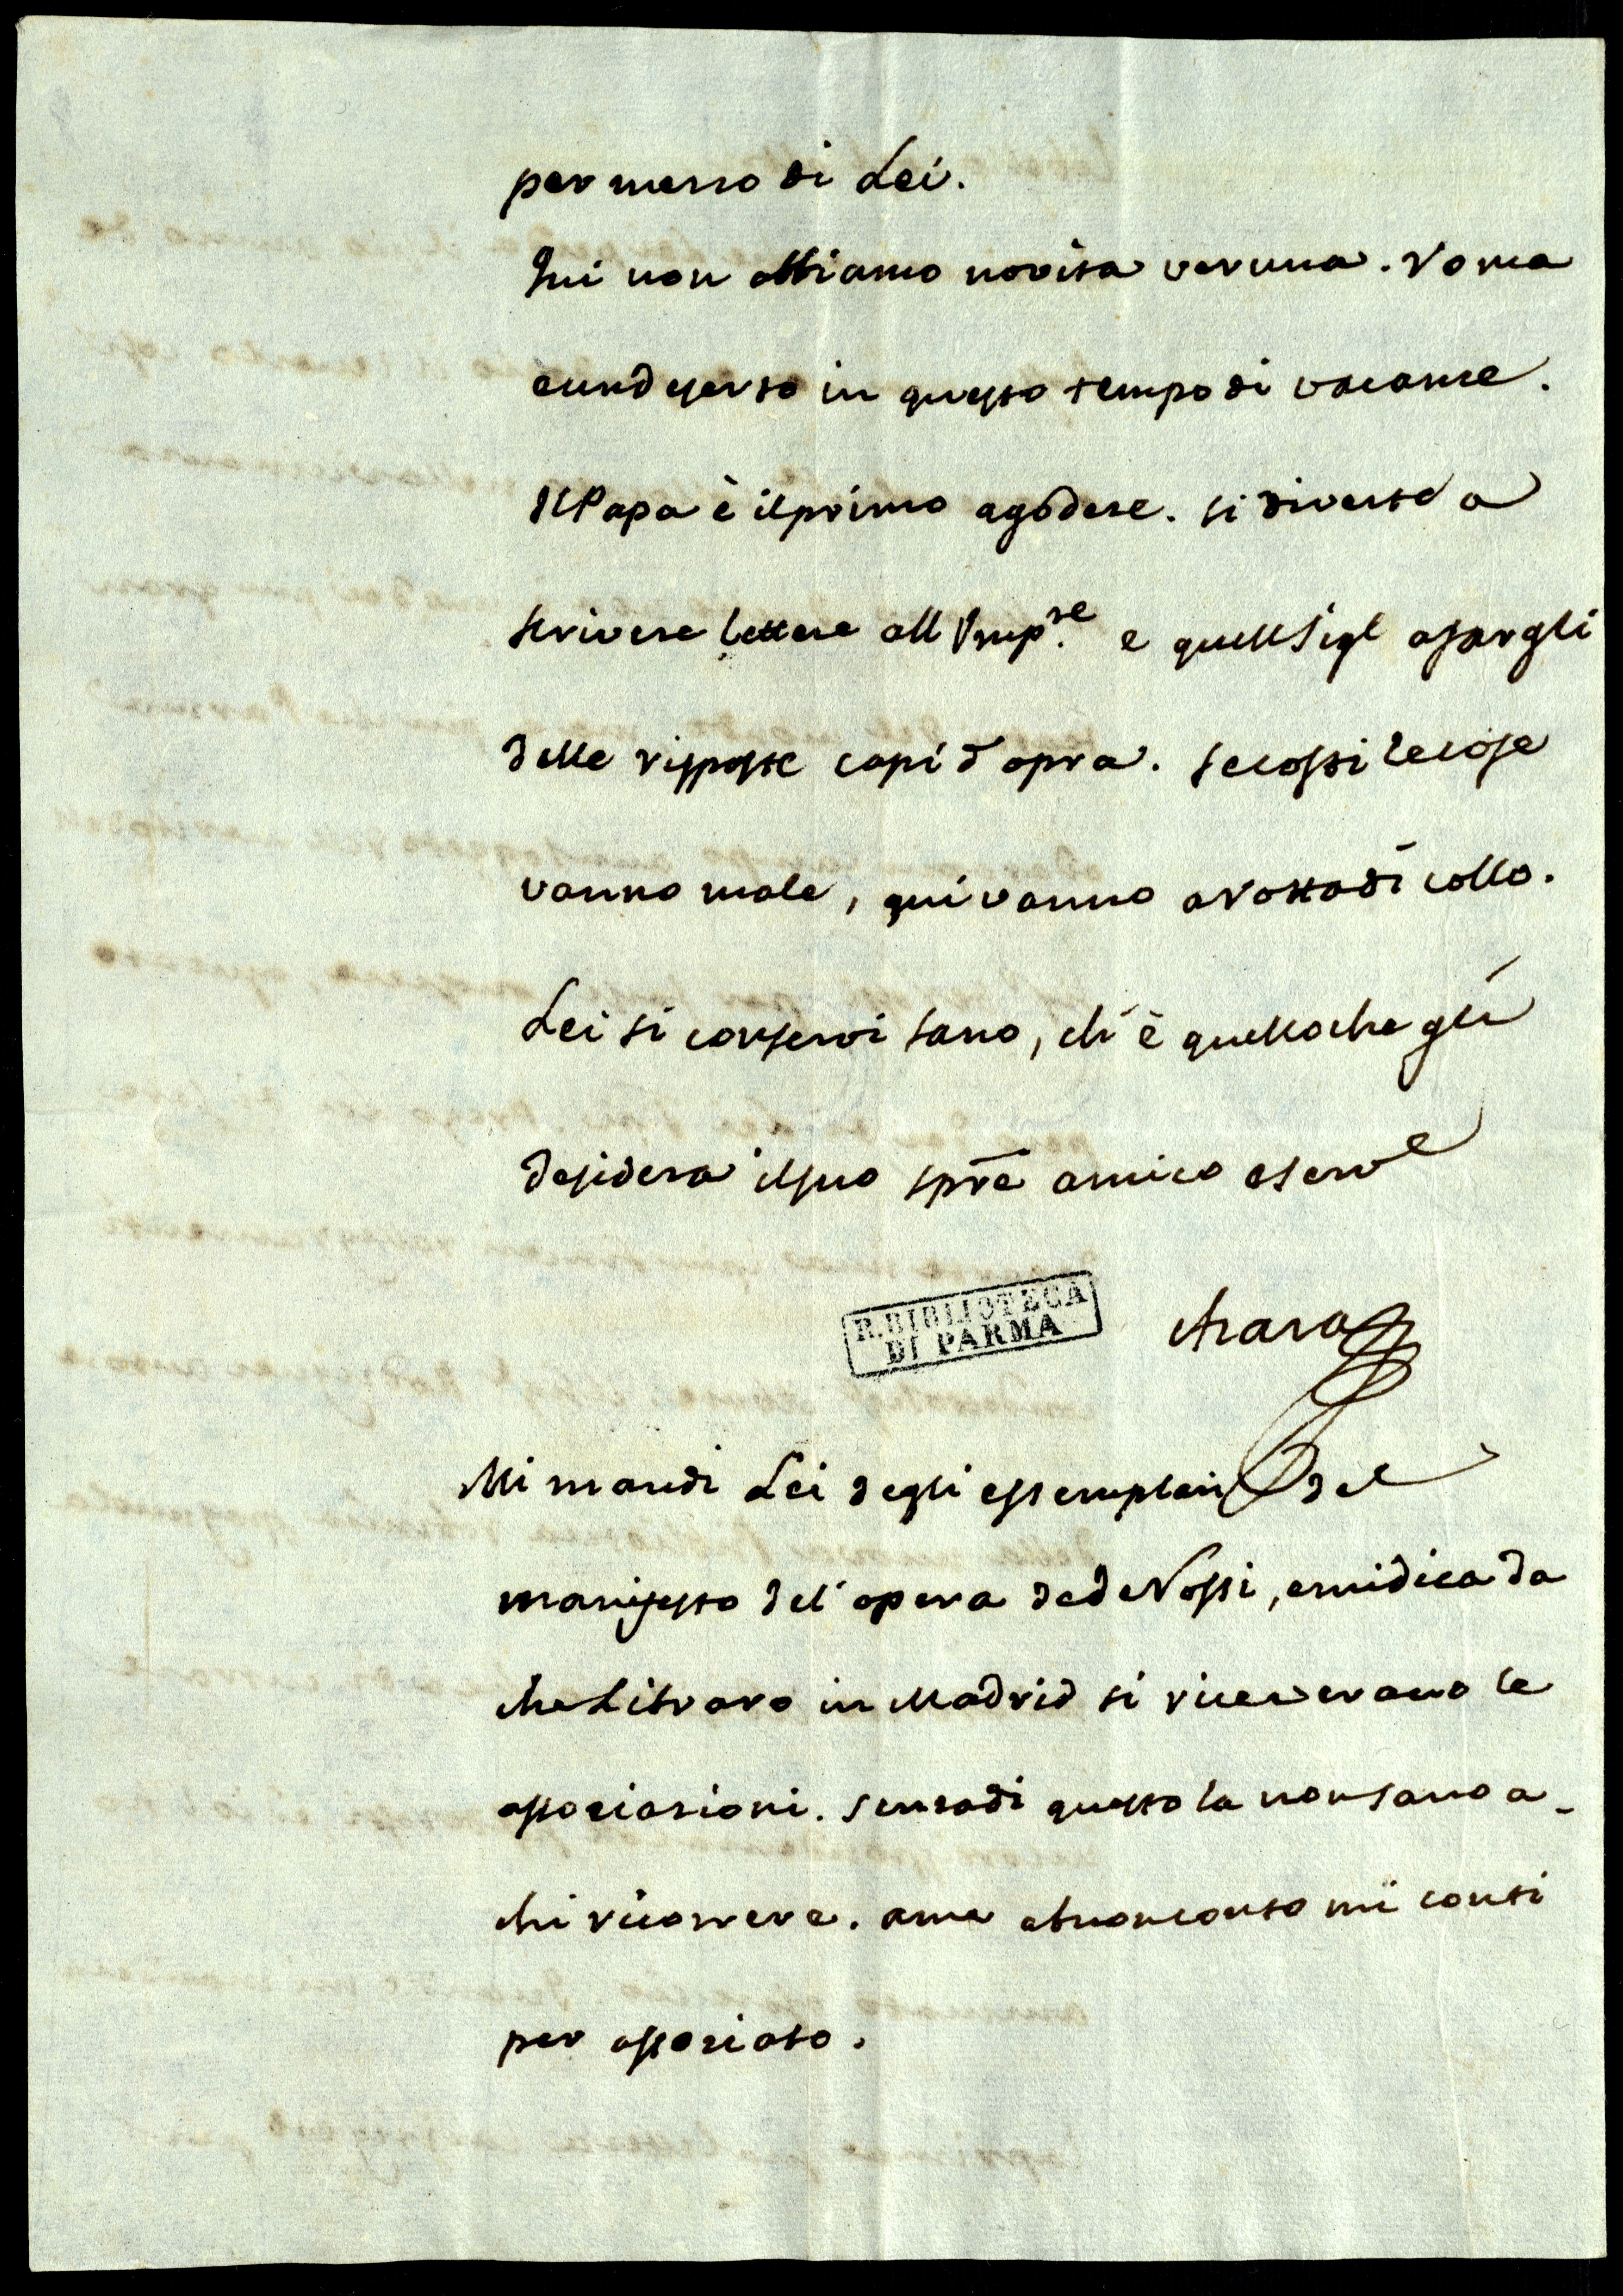 per messo di Lei.
Qui non abbiamo novita veruna. Roma
e un deserto in questo tempo di vacanze.
Il Papa è il primo a godere. si diverte a
scrivere lettere all Imp.re e quell Sigl a fargli
delle risposte capi d'opra. se costi le cose
vanno male, qui vanno a rotta di collo.
Lei si conservi sano, ch'è quello che gli
desidera il suo spre amico e serve
Azara
R. BIBLIOTECA
DI PARMA
Mi mandi Lei degli essemplari del
manifesto del opera de de Rossi, e mi dica da
che Libraro in Madrid si riceverano le
associazioni. senza di questo la non sano a-
chi ricorrere. a me a buon conto mi conti
per associato.